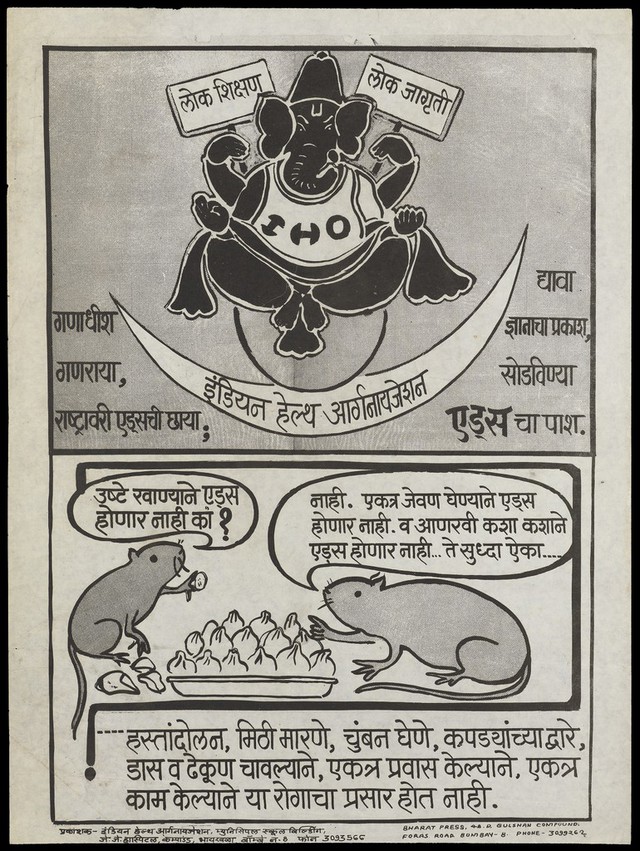 लोक शिक्षण
लोक जागृती
IHO
गणाधीश
गणराया,
राष्ट्रावरी एड्सची छाया;
इंडियन हेल्थ आर्गनायजेशन
द्यावा
ज्ञानाचा प्रकाश,
सोडविण्या
एड्स चा पाश.
उष्टे खाण्याने एड्स
होणार नाही कां?
नाही. एकत्र जेवण घेण्याने एड्स
होणार नाही. व आणखी कशा कशाने
एड्स होणार नाही... ते सुध्दा ऐका....
----हस्तांदोलन, मिठी मारणे, चुंबन घेणे, कपड्यांच्याद्वारे,
डास व ढेकूण चावल्याने, एकत्र प्रवास केल्याने, एकत्र
काम केल्याने या रोगाचा प्रसार होत नाही.
प्रकाशक- इंडियन हेल्थ आर्गनायजेशन, म्युनिसिपल स्कूल बिल्डिंग,
जे.जे. हास्पिटल, कम्पाउंड, भायखला बॉम्बे न.८ फोन 3093565
BHARAT PRESS, 42.D. GULSHAN COMPOUND.
FORAS ROAD BOMBAY-8. PHONE-3099262